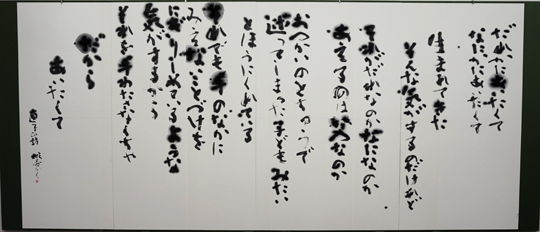 だれかにあいたくて
なにかにあいたくて
生まれてきた
そんな気がするのだけれど
それがだれなのかなになのか
あえるのはいつなのか
おつかいのとちゅうで
迷ってしまった子どもみたい
とほうにくれている
それでも手のなかに
みえないことづけを
にぎりしめているような
気がするから
それを手わたさなくちゃ
だから
あいたくて